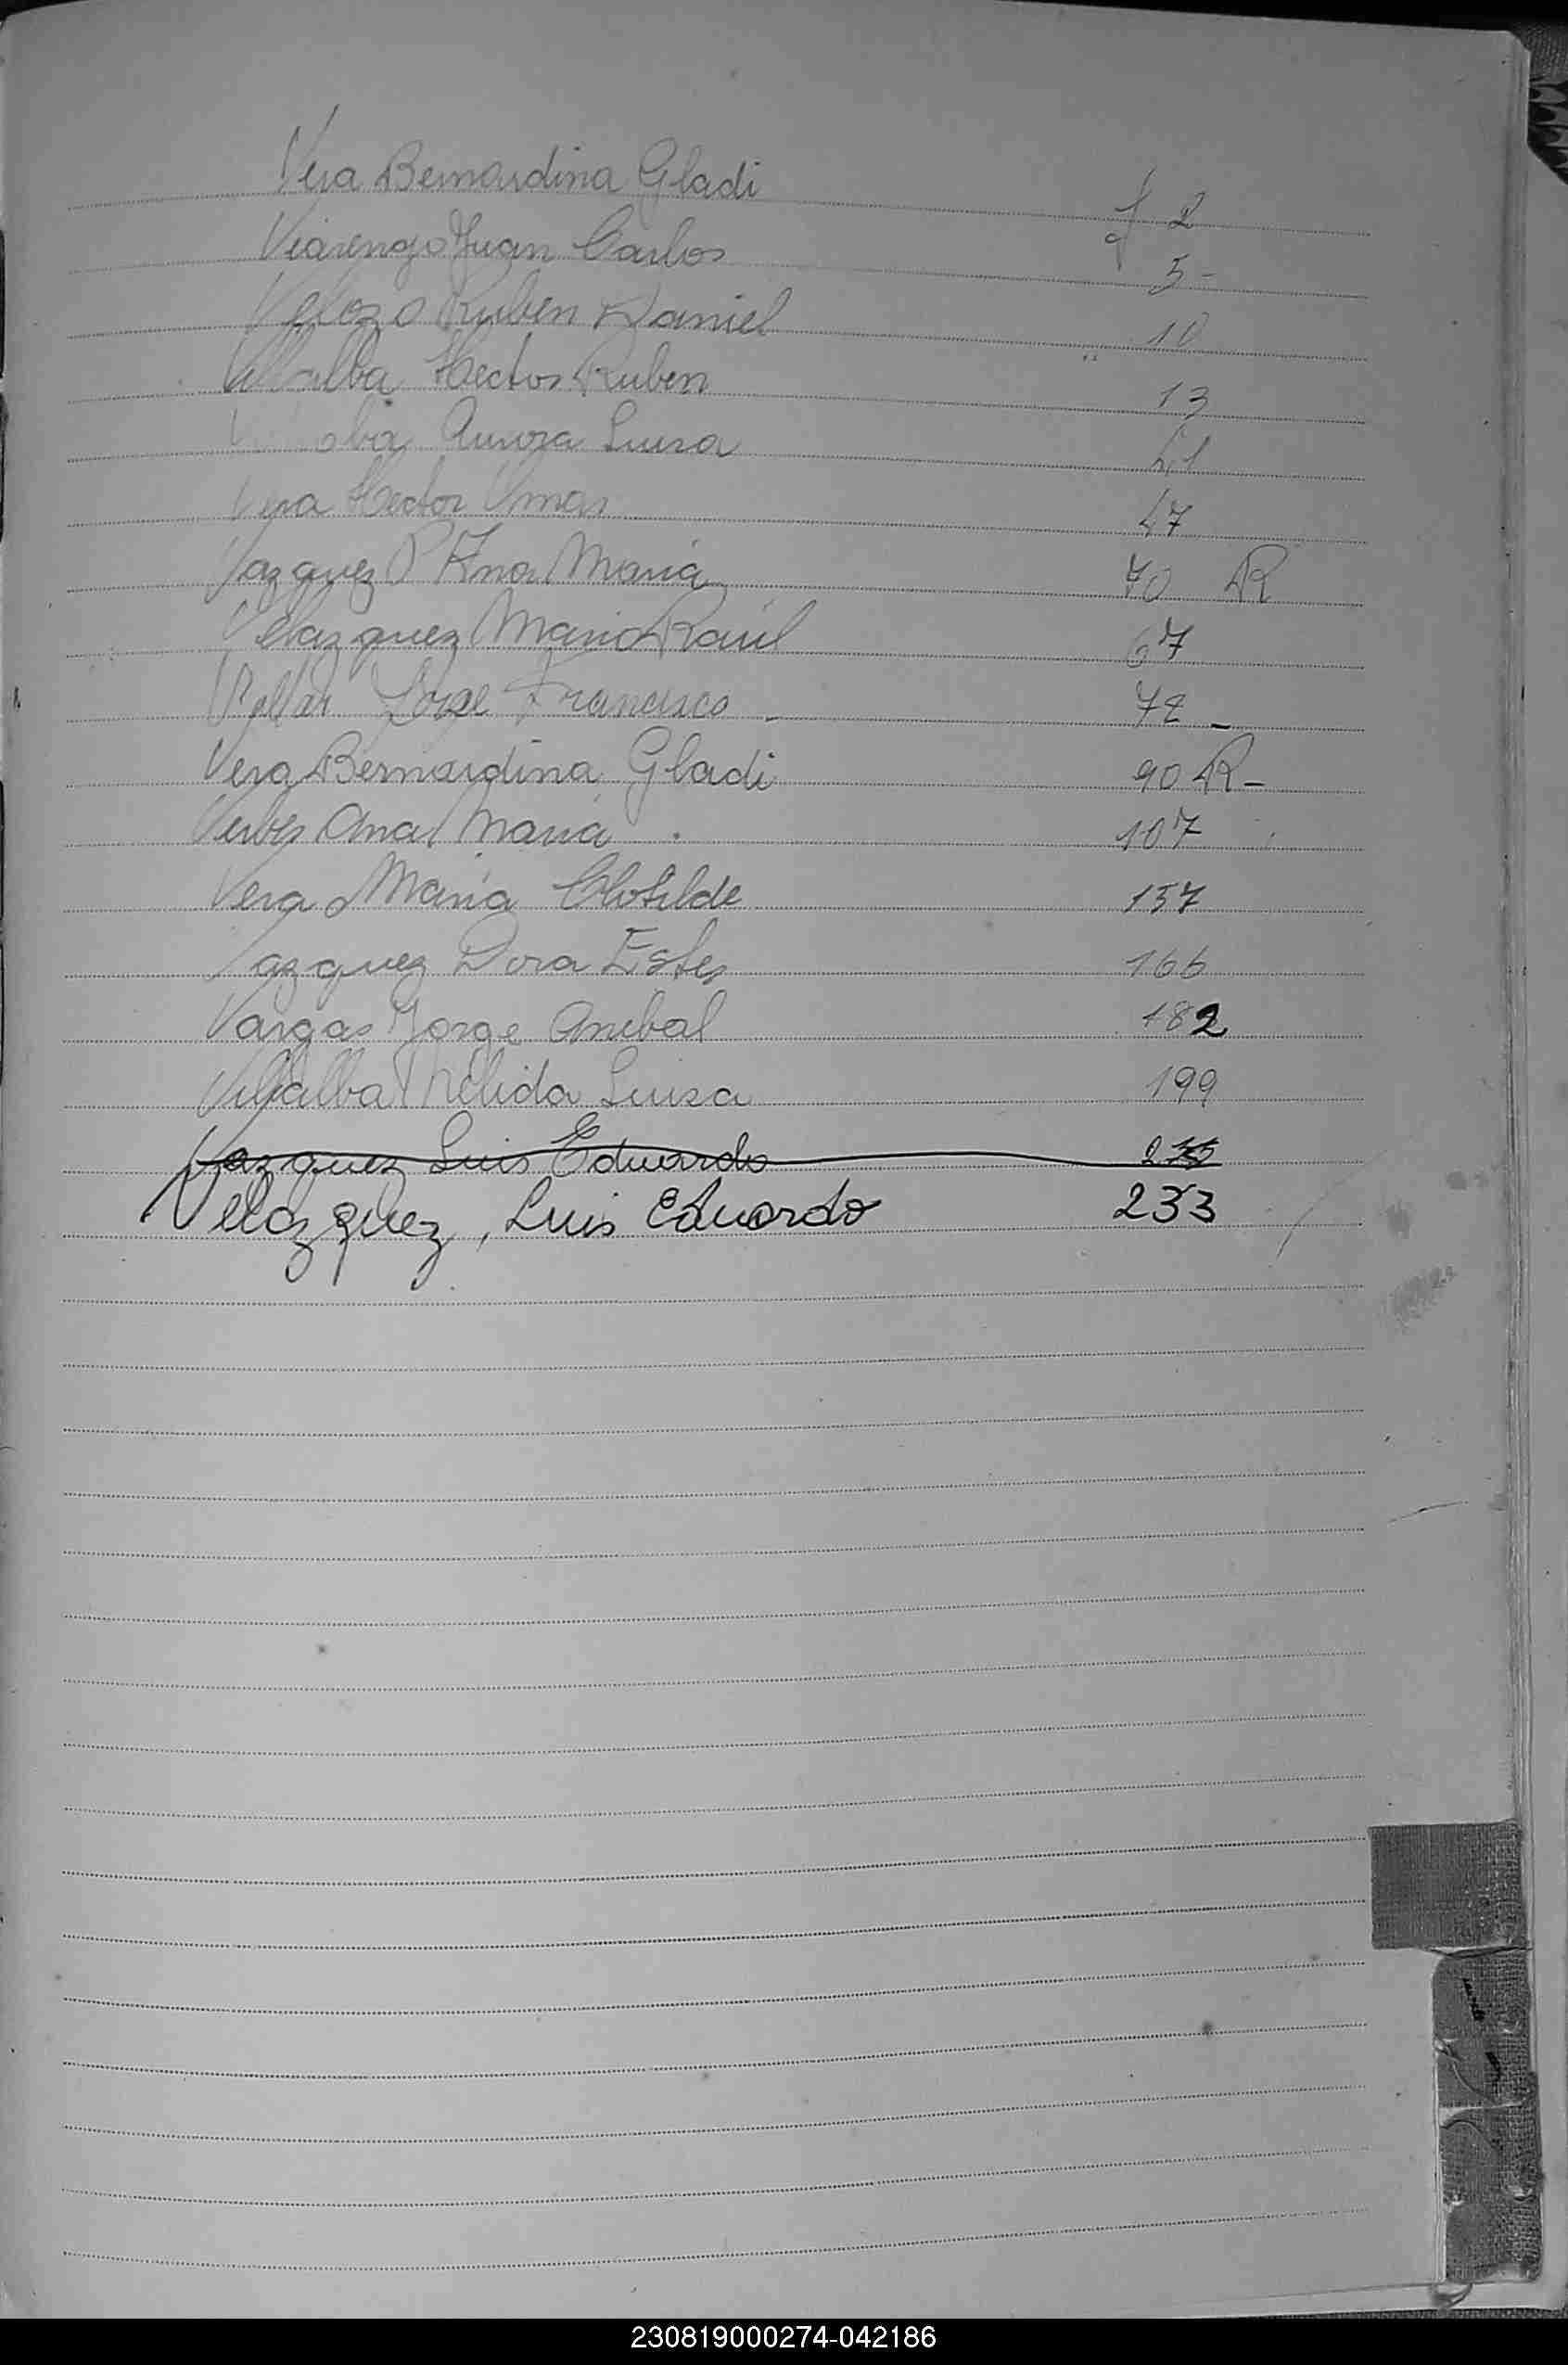 Vera Bernardina Gladi f 2
Viarengo Juan Carlos 5-
Velozo Ruben Daniel " 10
Villalba Hector Ruben 13
Aurora Luisa 41
Vera Hector Omar 47
Vazquez Ana Maria 70 R
Velazquez Mario Raúl 67
Jorge Francisco - 72 -
Vera Bernardina Gladi 90 R-
Ana Maria 107
Vera Maria Clotilde 157
Vazquez Dora Ester 166
Vargas Jorge Anibal 182
Villalba Nélida Luisa 199
Vazquez Luis Eduardo
Velazquez, Luis Eduardo 233
230819000274-042186